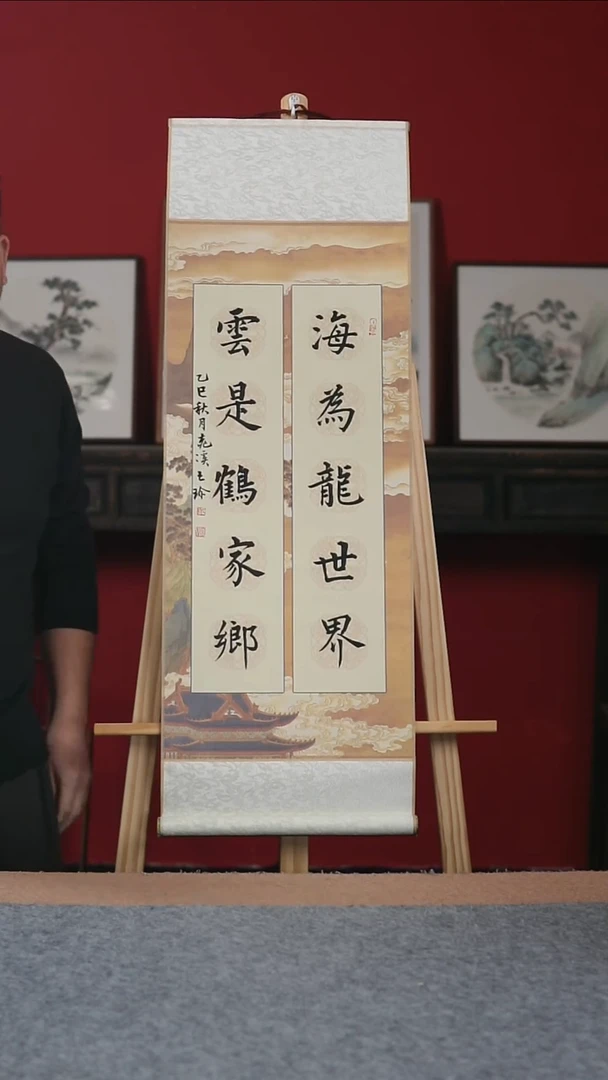 海為龍世界
雲是鶴家鄉
乙巳秋月堯溪王玲